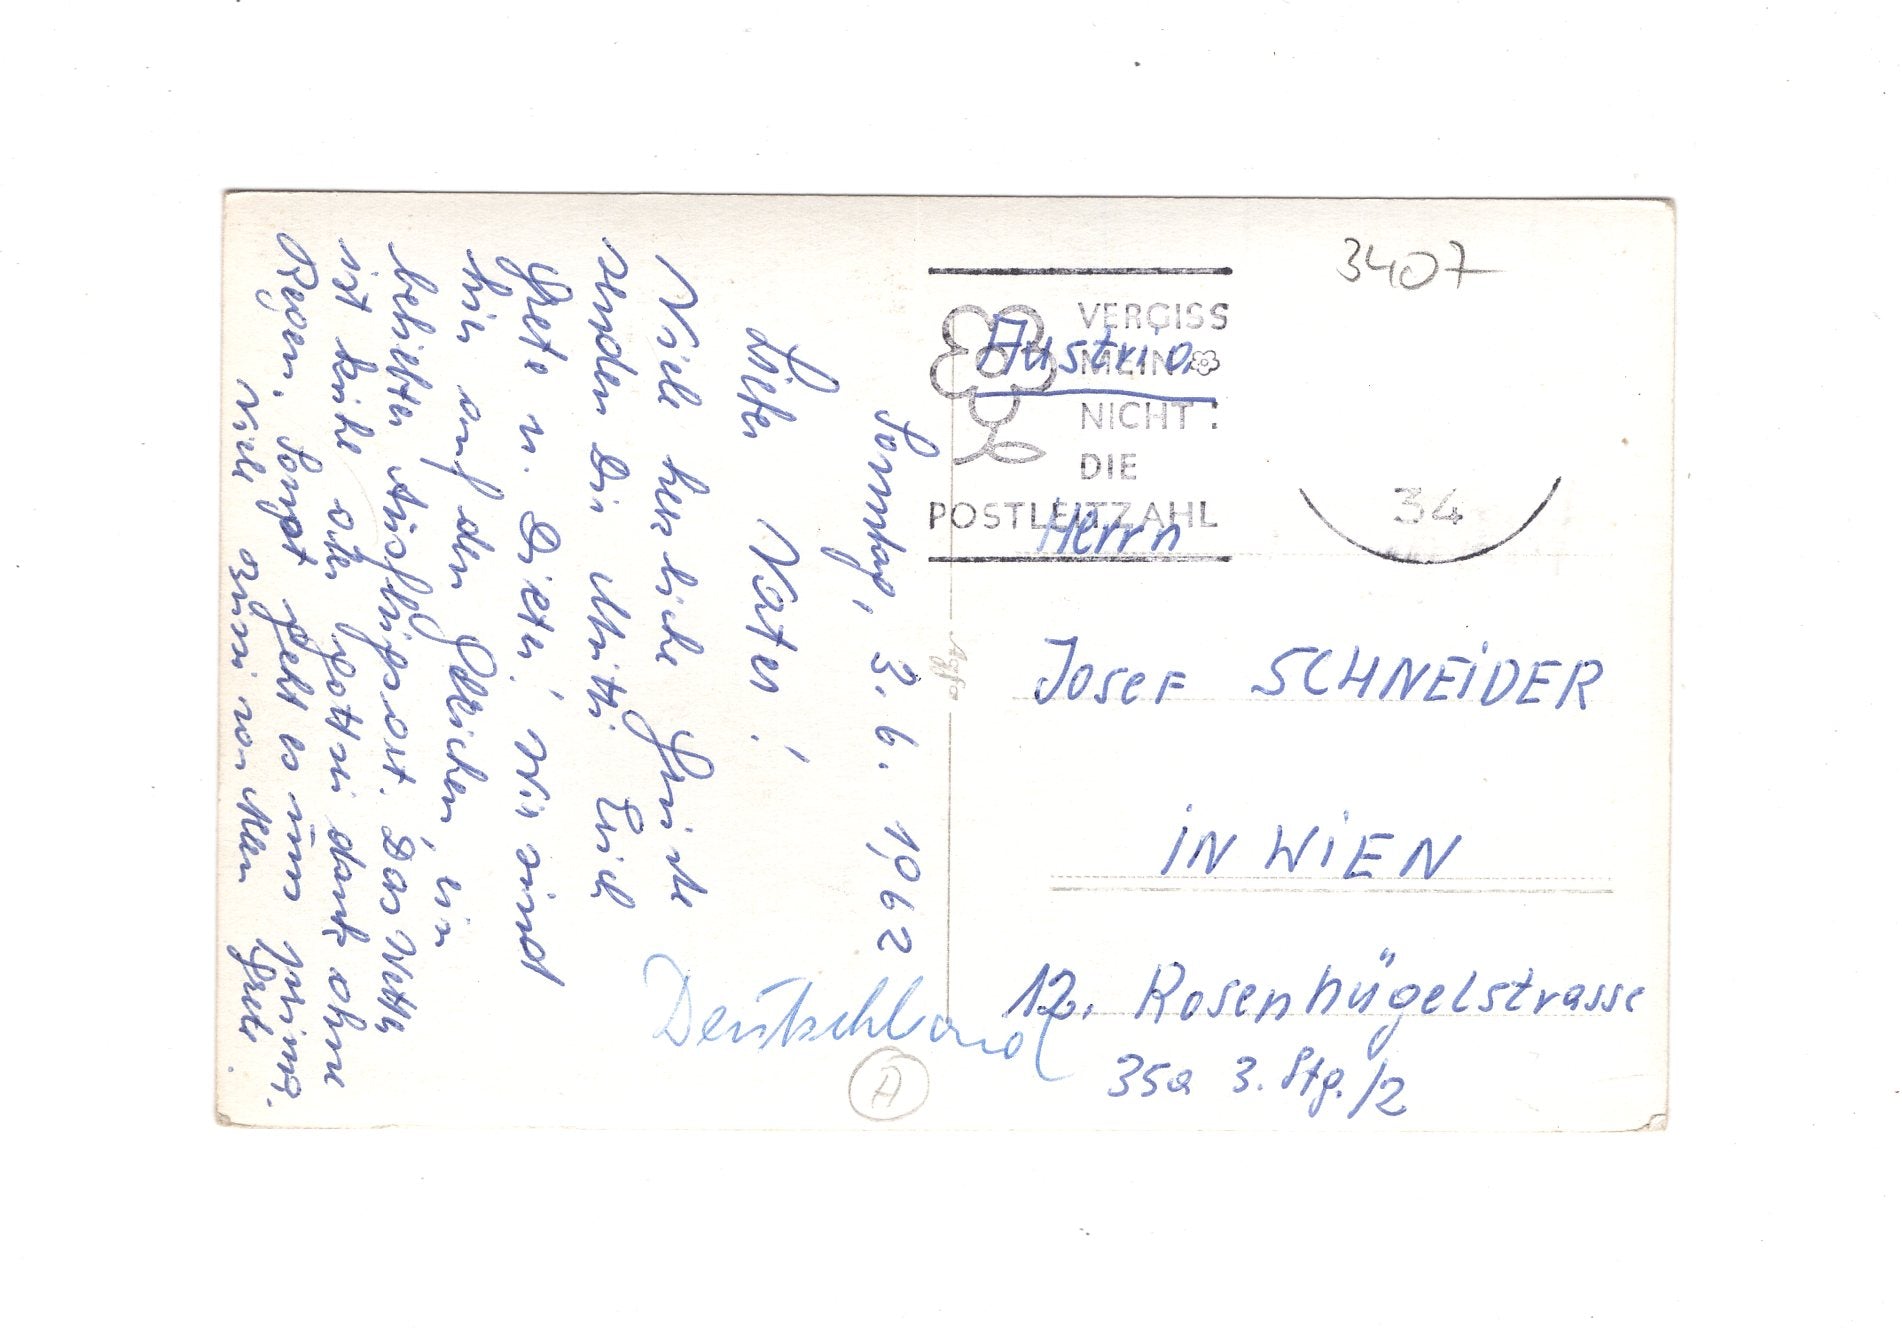 Sonntag, 3. 6. 1962
Lieber Vater!
Viele herzliche Grüße
senden Dir Mutti Erich
Grete u. Dieter! Wir sind
hier auf den Gleichen, ein
beliebter Ausflugsort. Das Wetter
ist kühl aber Gott sei dank ohne
Regen. Sonst geht es uns prima.
Viele von allen Grete.
Deutschland
A
Agfa
3407
VERGISS
MEIN
NICHT:
DIE
POSTLEITZAHL
34
Austria
Herrn
Josef SCHNEiDER
iN WiEN
12. Rosenhügelstrasse
35a 3. Stg./2